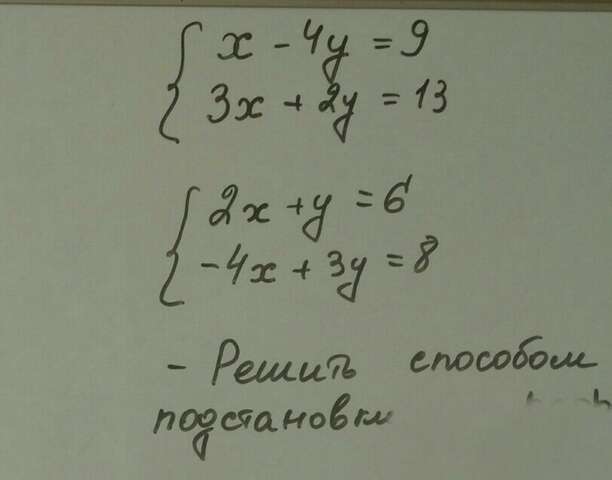 x - 4y = 9
3x + 2y = 13
2x + y = 6
-4x + 3y = 8
- Решить способом
подстановки